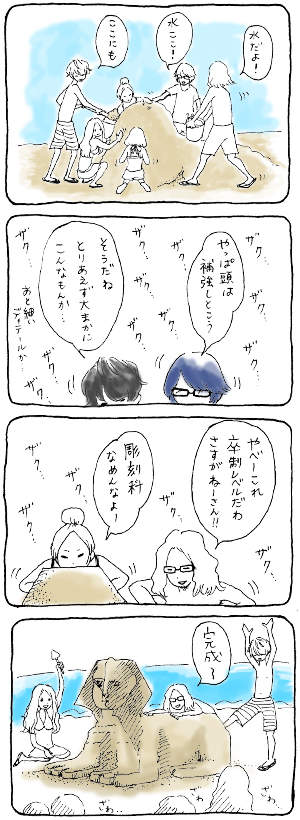 水だよー!
水
ここ!
ここにも
ザク…
ザク…
ザク…
ザク…
ザク…
ザク…
ザク…
やっぱ頭は
補強しとこう
そうだね
とりあえず大まかに
こんなもんか…
あと細い
ディテールか…
ザク…
ザク…
ザク…
ザク…
ザク…
やべーこれ
卒制レベルだわ
さすがねーさん!!
彫刻科
なめんなよー
完成〜
ざわ…
ざわ…